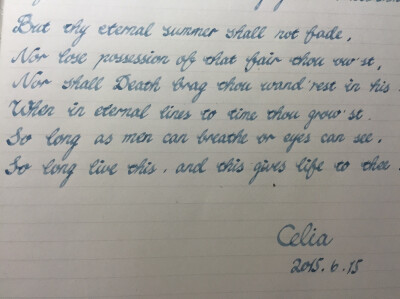 But thy eternal summer shall not fade,
Nor lose possession of that fair thou ow'st,
Nor shall Death brag thou wand'rest in his
When in eternal lines to time thou grow'st.
So long as men can breathe or eyes can see,
So long live this, and this gives life to thee.
Celia
2015.6.15